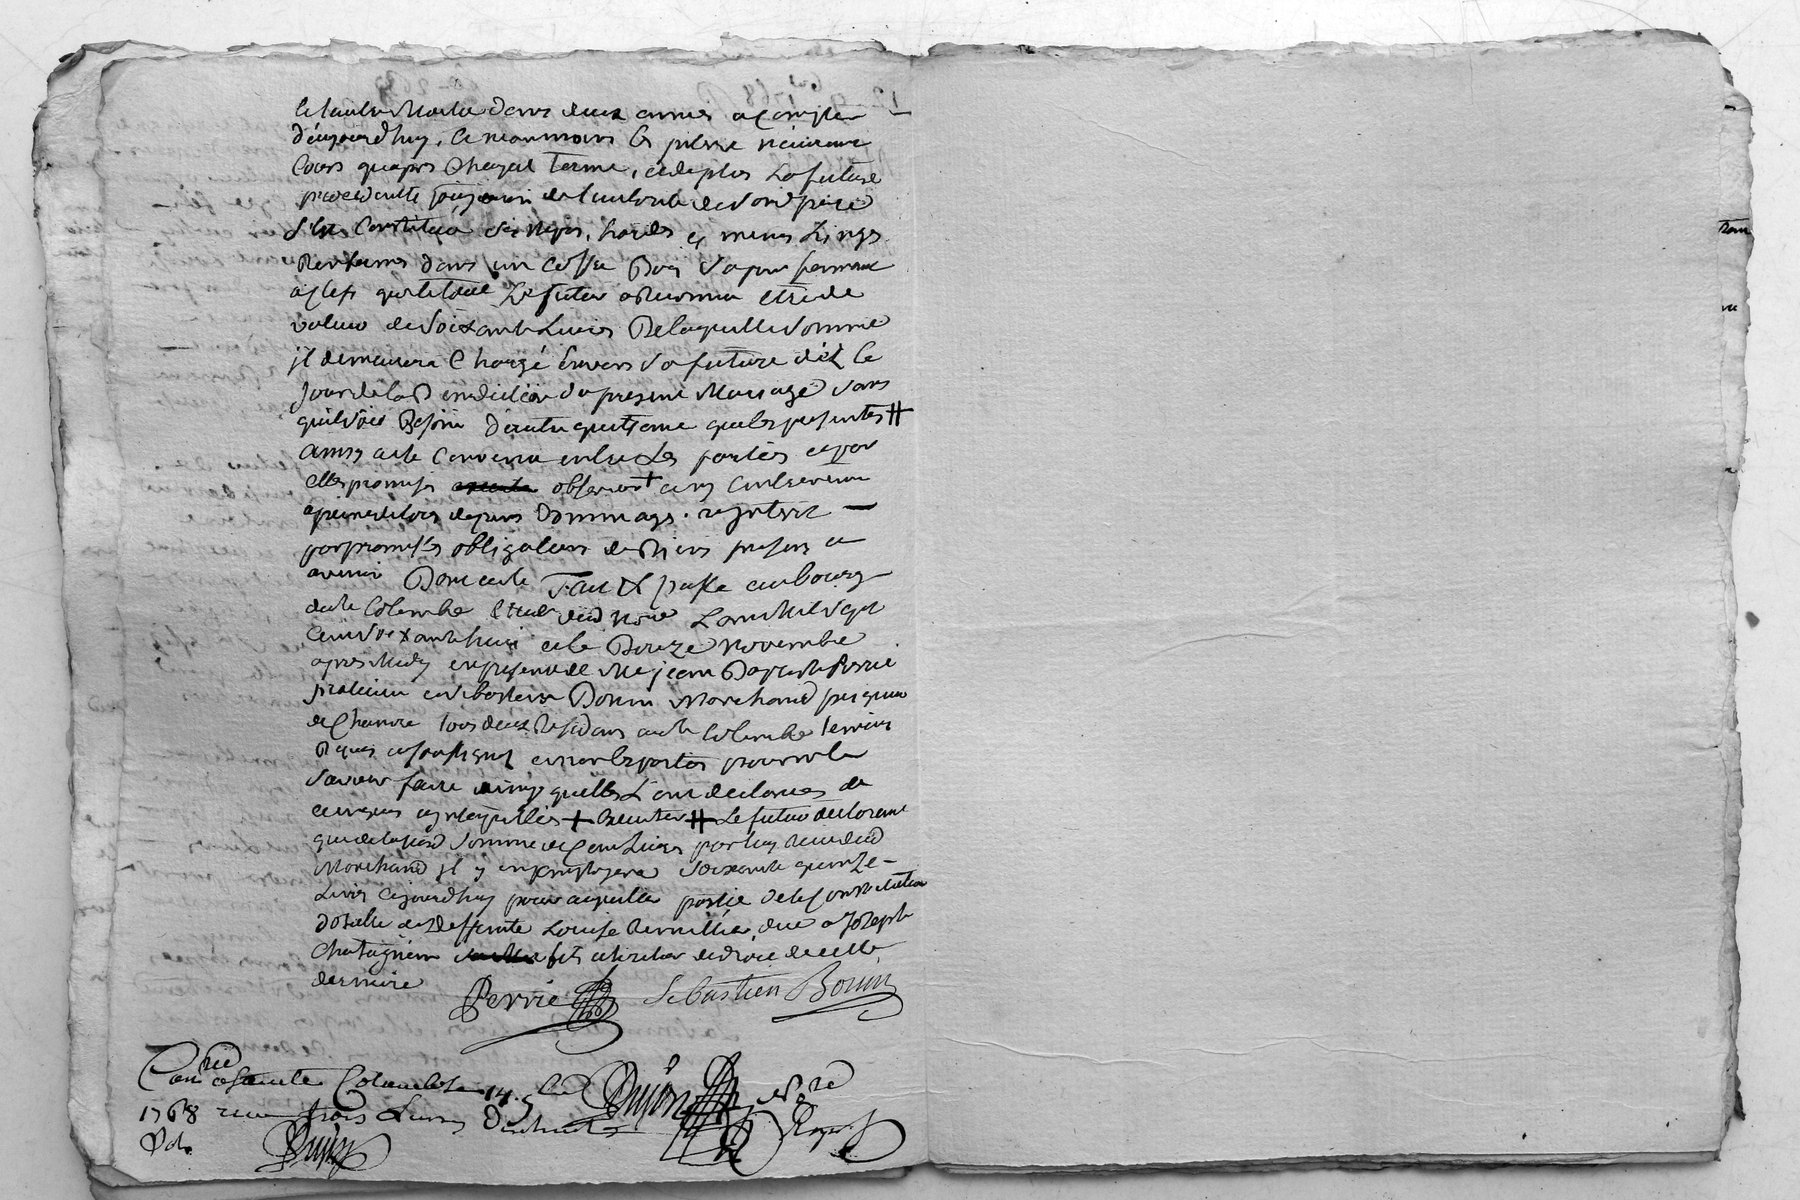 et l'autre Moitié dans deux années a compter
d'aujourd'huy, et neanmoins les interet n'auront
Cours qu'apres Chaque terme, et de plus La future
procedante toujours de l'autorité de son d père
s'est Constitué ses nipes, hardes et menus Linges
Renfermés dans un Coffre Bois sapin fermant
a Clef, que le tout Le futur a Reconnu Etre de
valeur de soixante Livres De laquelle somme
il demeurera Chargé Envers sa future dès le
Jour de la Benediction du present Mariage sans
qu'il soit Besoin d'autre quittance que les presentes #
ainsy a été Convenu entre Les parties et par
elles promis observer + et ny Contrevenir
a peine de tous depens Dommages. interets —
par promesses obligations de Biens presens et
avenir Dont acte Fait & passé au bourg
de ste Colombe Etude dud Nore L'an Mil Sept
Cent soixante huit et le Douze Novembre
apres Midy en presence de Me jean Baptiste Perrié
praticien et sebastien Bonin Marchand peigneur
de Chanvre tous deux Residans aud ste Colombe temoins
Requis et soussignés et non les parties pour ne le
savoir faire ainsy qu'elles L'ont declarés de
ce enquis et interpellés + executer # Le futur declarant
que de la susd somme de Cent Livres par luy due aud
Marchand il y en employera soixante quinze —
Livres cejourd'huy pour acquitter partie de la Constitution
dotalle de deffunte Louise due a Joseph
Chatagnier fils et heritier de droit de cette
derniere
Perrié Sebastien Bonin
Conlé a Sainte Colombe Le 14. 9bre
1768 recu trois Livres
Dujon
Dujon
Nore
Royal